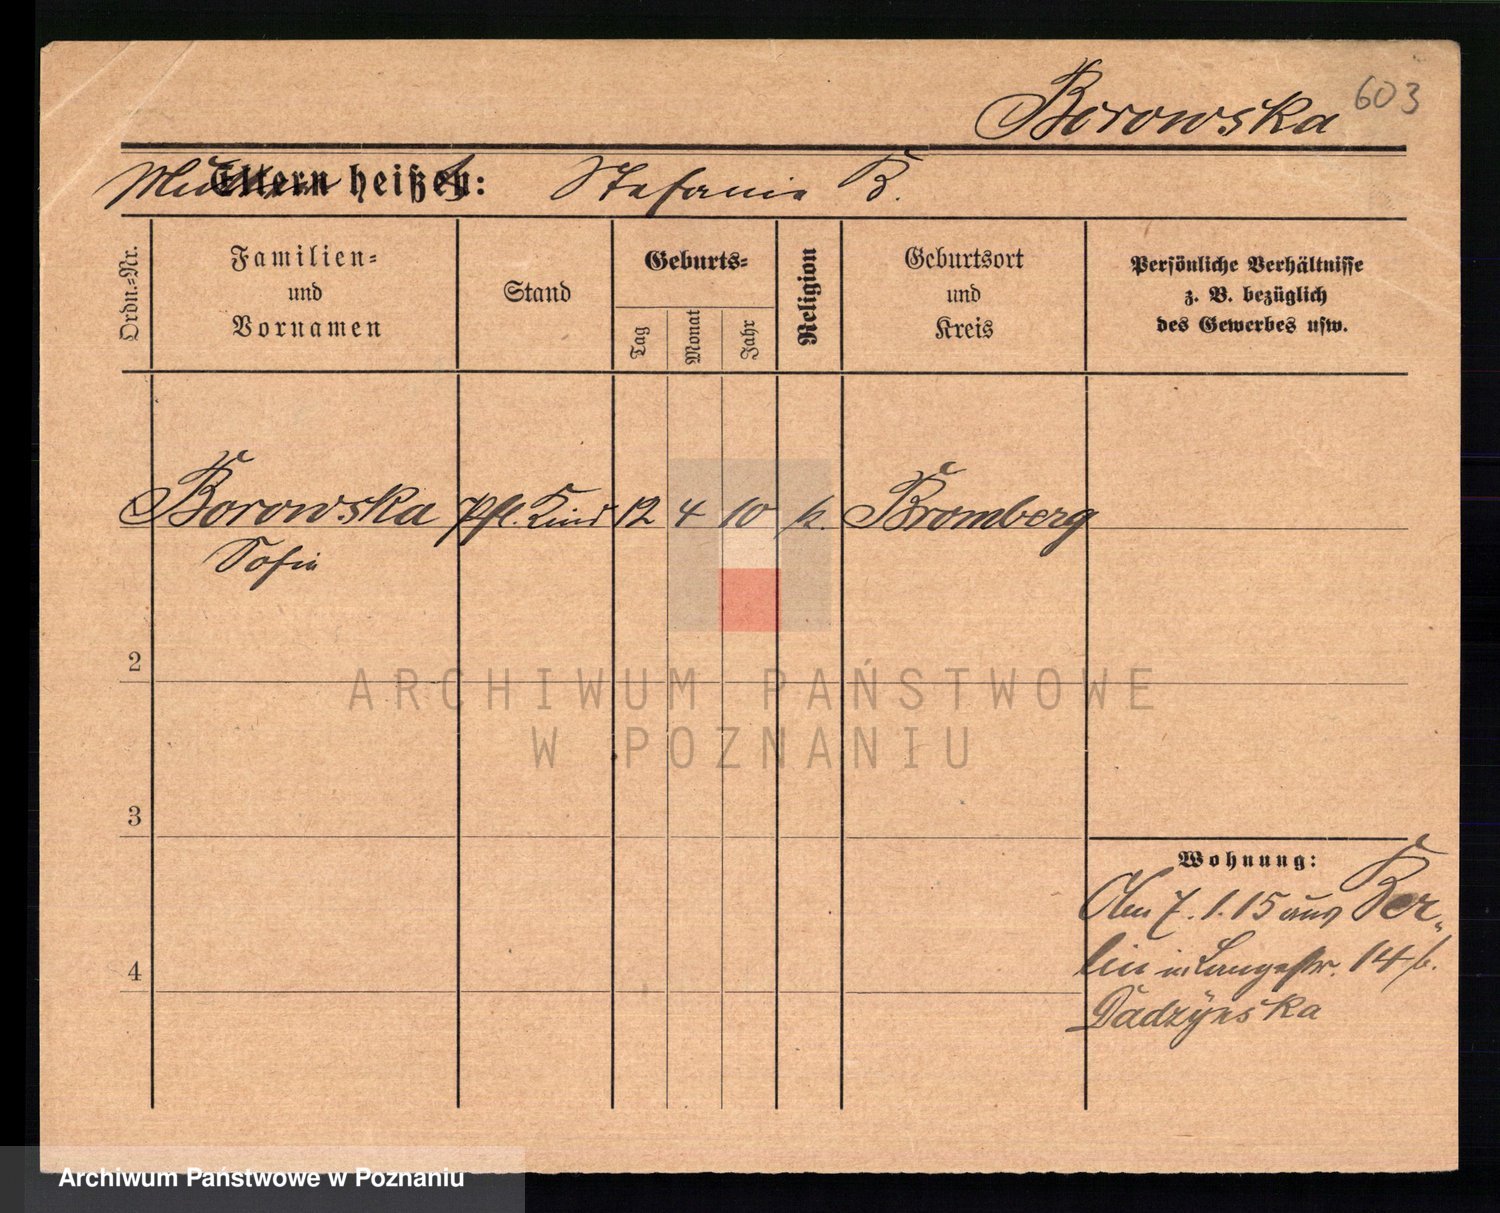 Borowska
603
Mutter heißt: Stefania B.
Ordn.=Nr.
Familien=
und
Vornamen
Stand
Geburts=
Tag
Monat
Jahr
Religion
Geburtsort
und
Kreis
Persönliche Verhältnisse
z. B. bezüglich
des Gewerbes usw.
Borowska Pfl. Kind 12 4 10 k. Bromberg
Sofia
2
ARCHIWUM PAŃSTWOWE
W POZNANIU
3
Wohnung:
Am 7. 1. 15 aus Ber-
lin in Langestr. 14 b.
Dadzynska
4
Archiwum Państwowe w Poznaniu